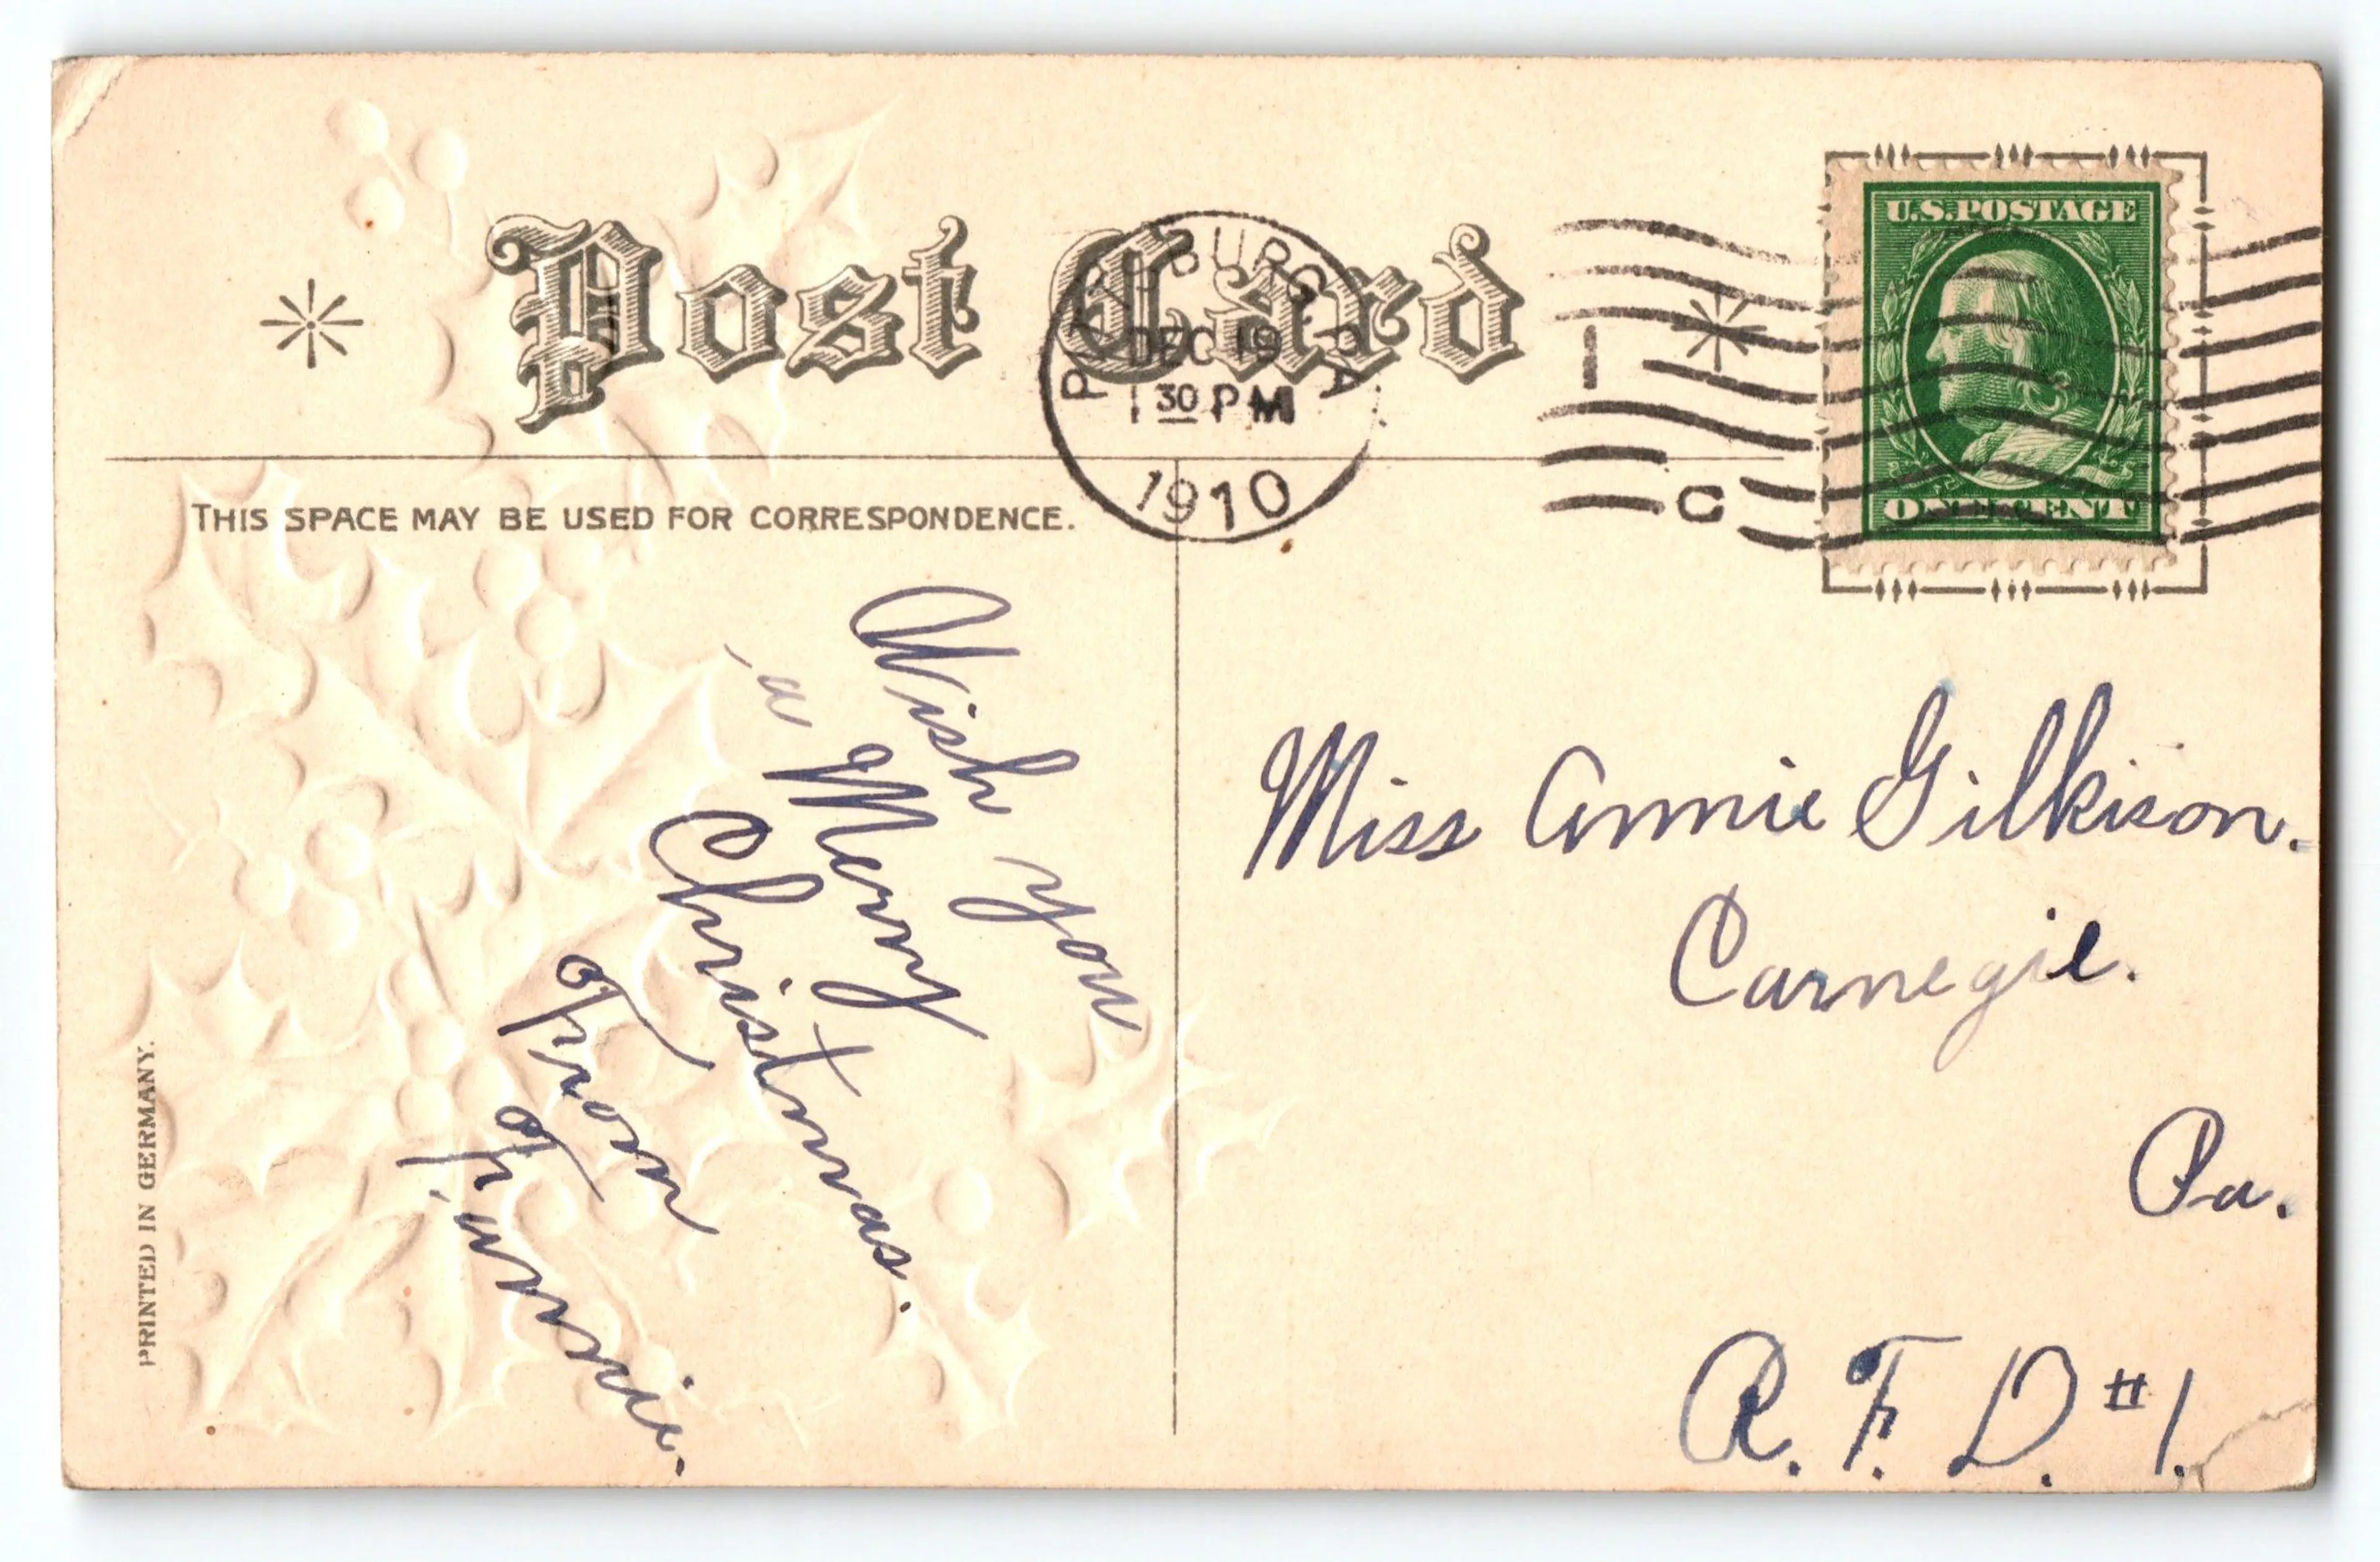 Post Card
PITTSBURG, PA.
DEC 19
1 30 PM
1910
1
C
U.S. POSTAGE
ONE CENT
THIS SPACE MAY BE USED FOR CORRESPONDENCE.
Wish you
a Merry
Christmas.
From
PRINTED IN GERMANY.
Miss Annie Gilkison.
Carnegie.
Pa.
R. F. D. #1.